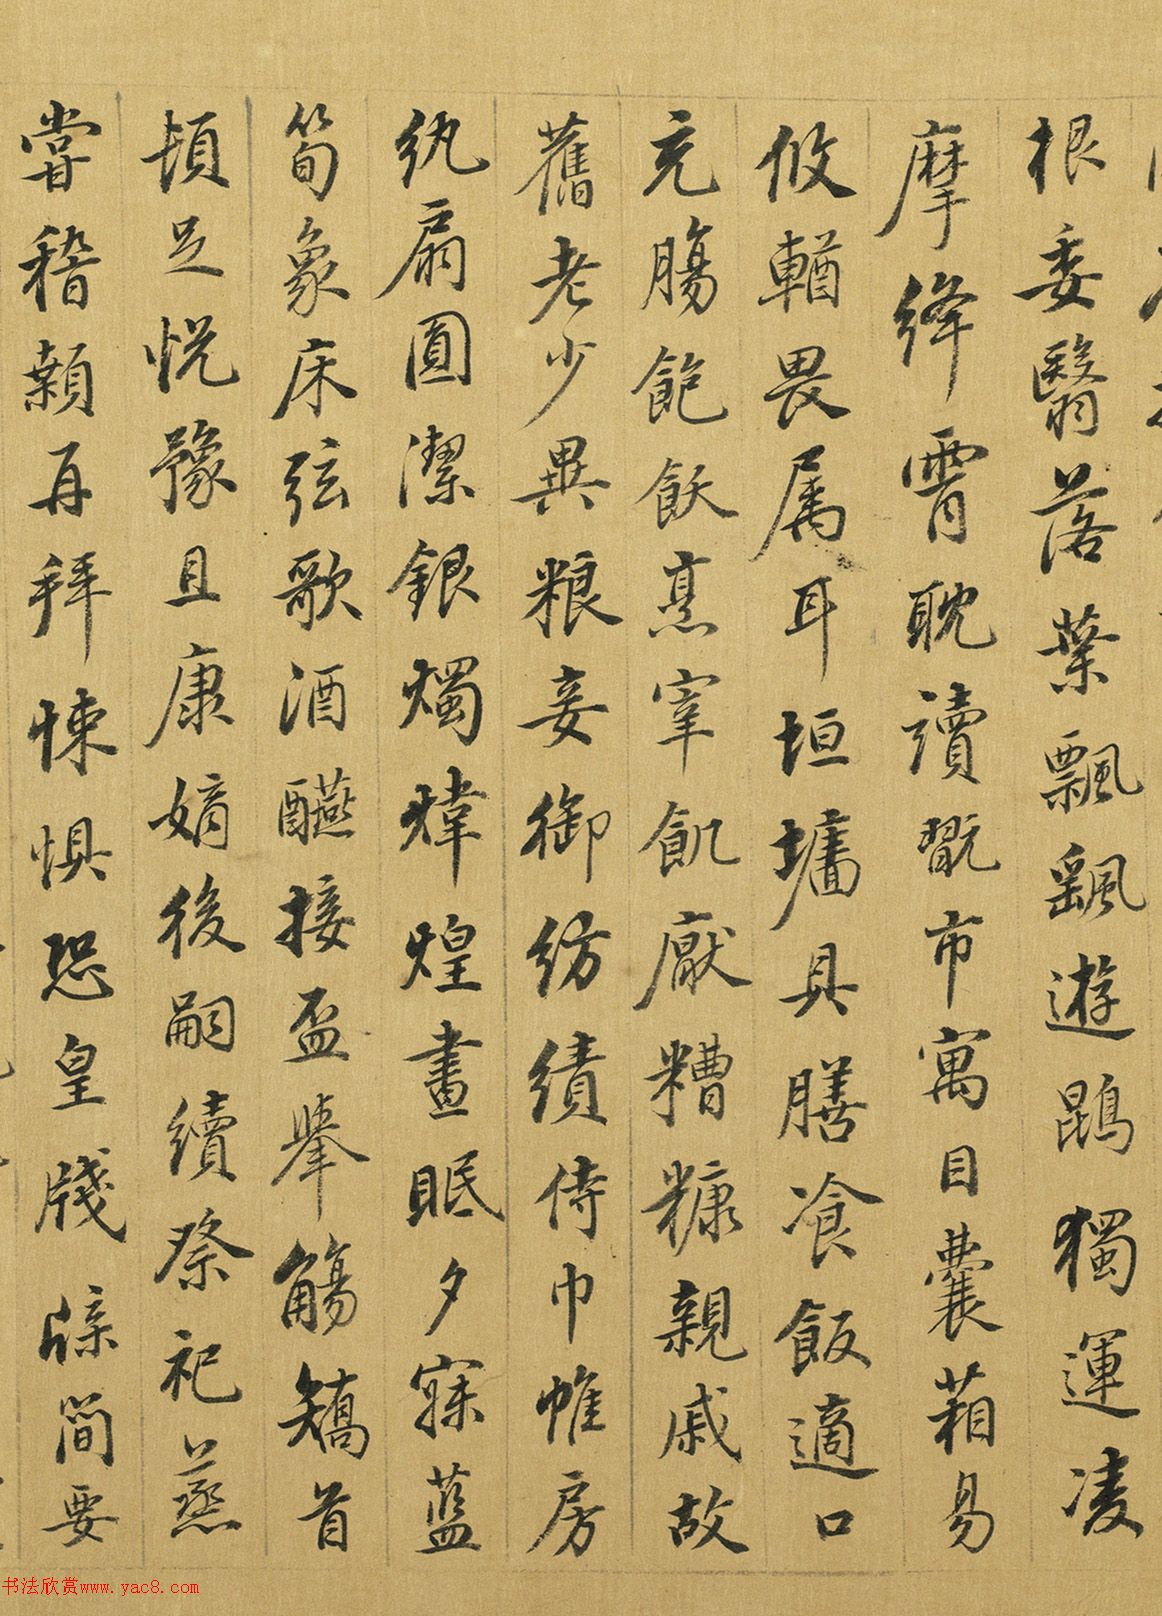 根委翳落葉飄颻遊鵾獨運凌
摩絳霄耽讀翫市寓目囊葙易
攸輶畏属耳垣墻具膳飡飯適口
充腸飽飫烹宰飢厭糟糠親戚故
舊老少異粮妾御紡績侍巾帷房
紈扇圓潔銀燭煒煌晝眠夕寐藍
筍象床弦歌酒醼接盃舉觴矯首
頓足悦豫且康嫡後嗣續祭祀蒸
甞稽顙再拜悚惧恐皇牋牒簡要
书法欣赏www.yac8.com